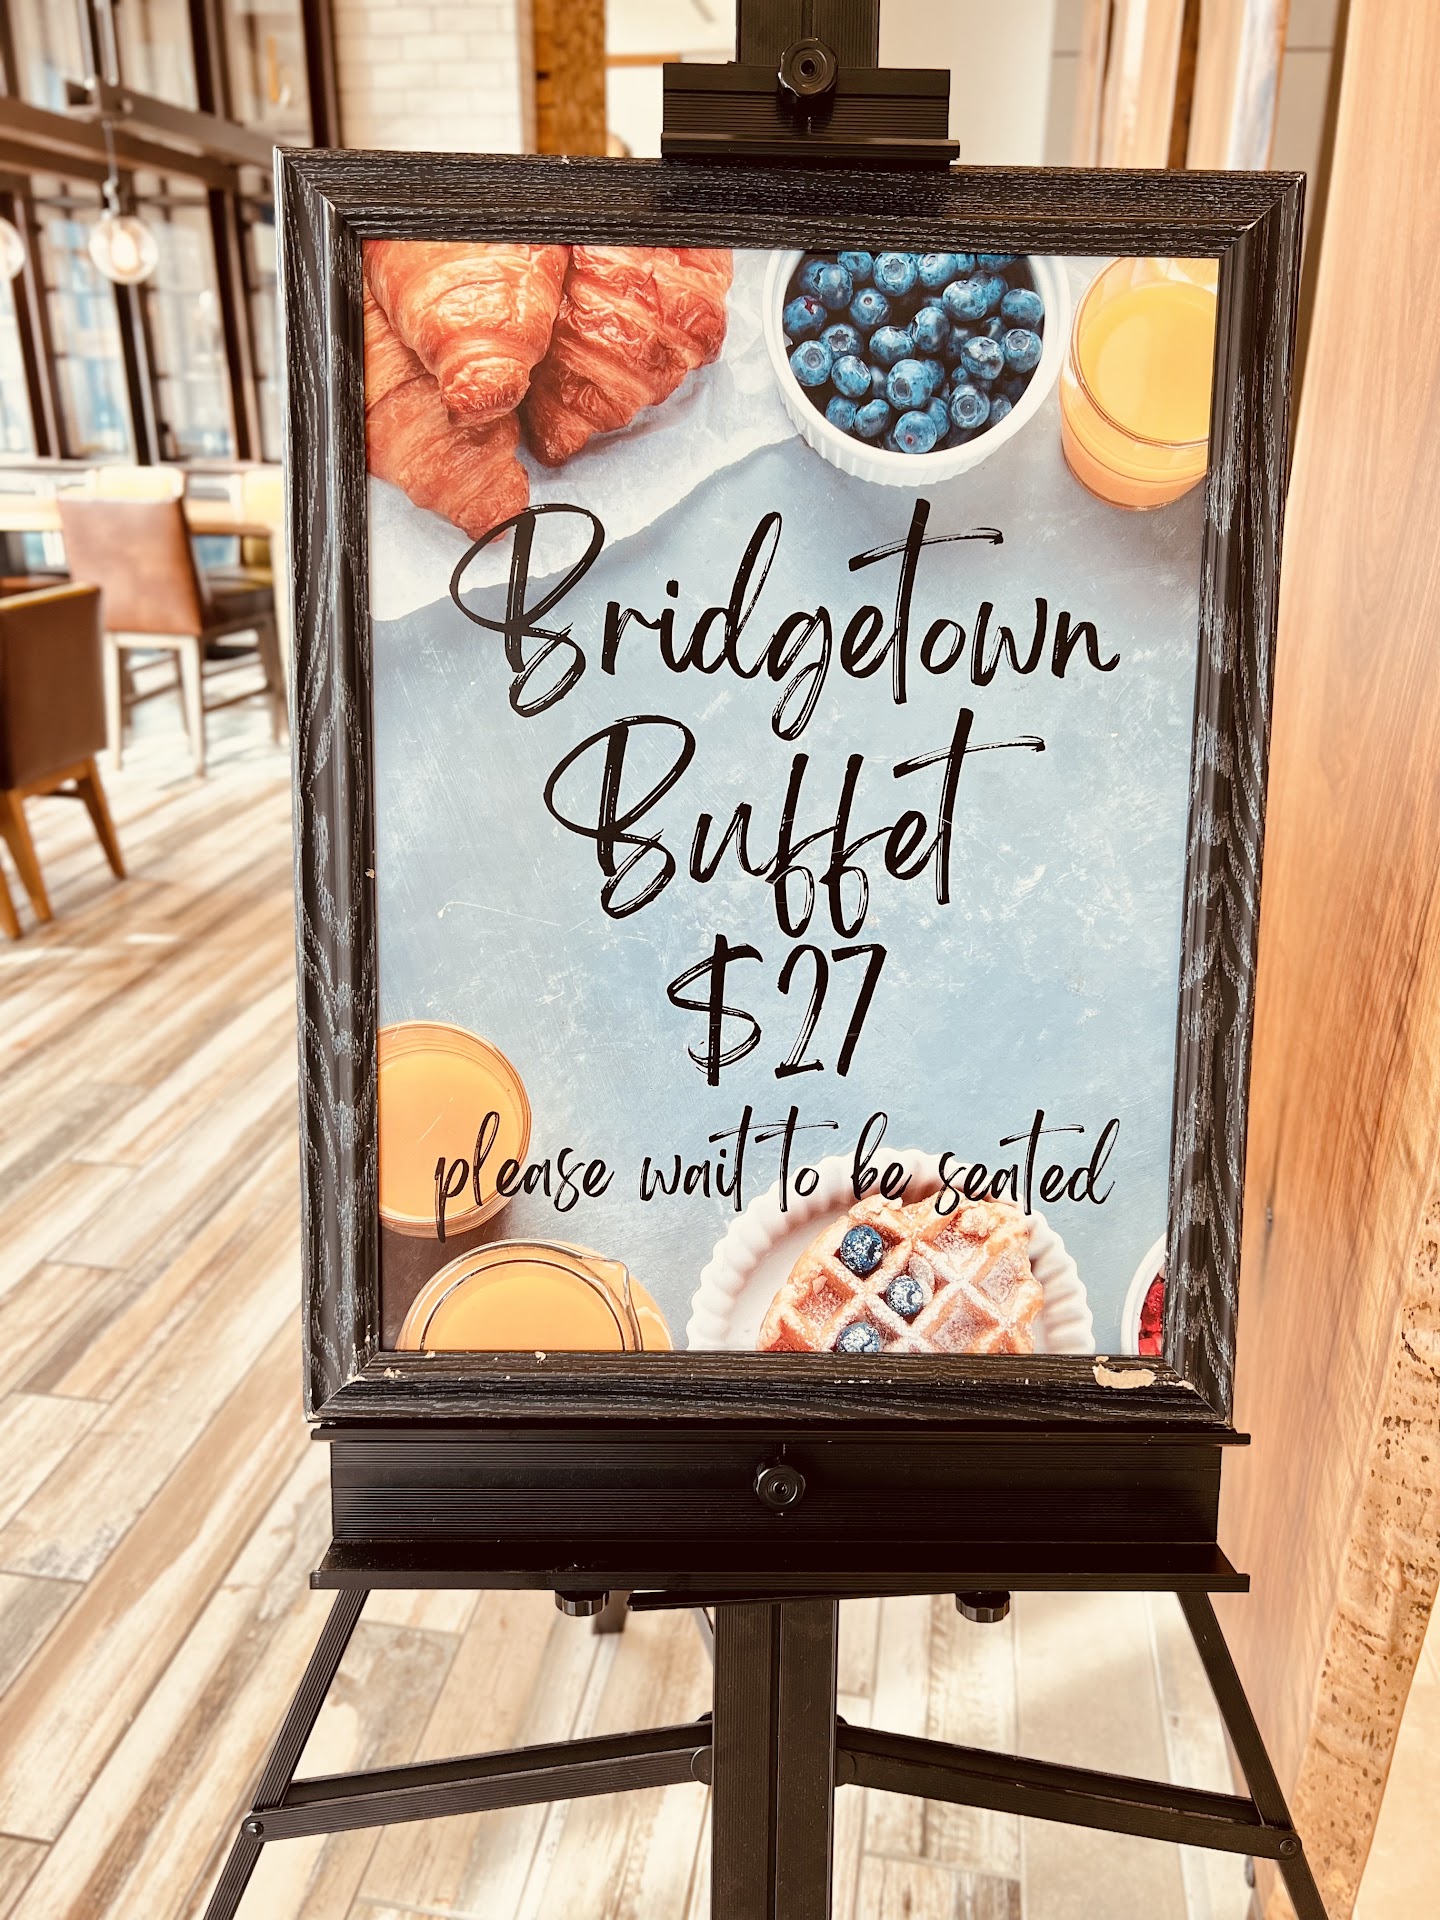 Bridgetown
Buffet
$27
please wait to be seated